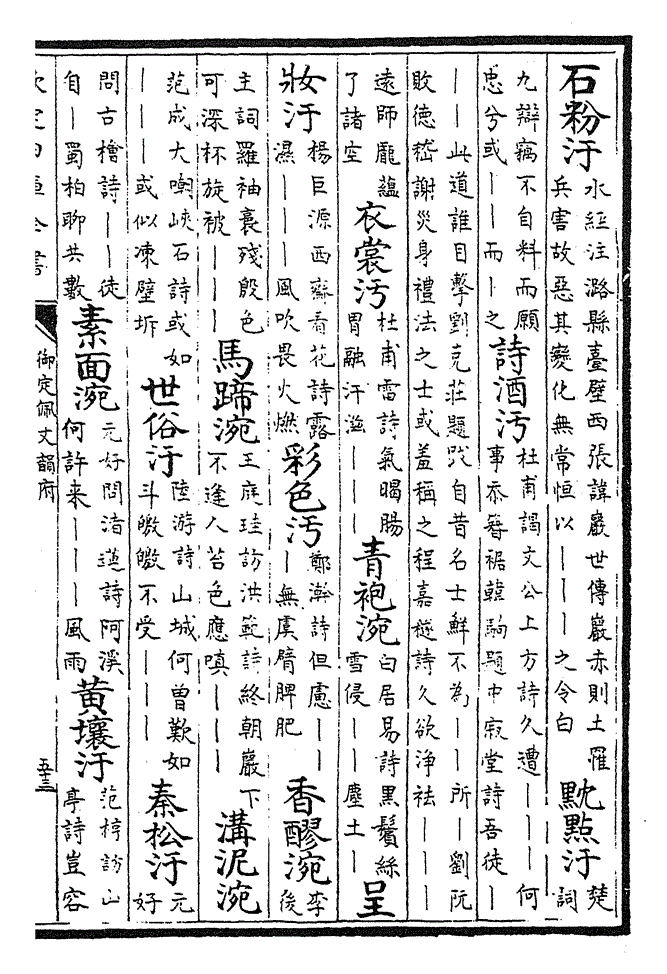 石粉汙
水經注潞縣臺壁西張諱巖世傳巖赤則土罹
兵害故惡其變化無常恒以———之令白
黕點汙
楚
詞
九辯竊不自料而願
忠兮或——而—之
詩酒汚
杜甫謁文公上方詩久遭——何
事忝簪裾韓駒題中寂堂詩吾徒—
——此道誰目擊劉克莊題跋自昔名士鮮不為——所—劉阮
敗德嵇謝災身禮法之士或羞稱之程嘉燧詩久欲淨袪———
遠師龐藴
了諸空
衣裳汚
杜甫雷詩氣暍腸
胃融汗滋———
青袍涴
白居易詩黑鬢絲
雪侵——塵土—
呈
妝汙
楊巨源西齋看花詩露
濕———風吹畏火燃
彩色汚
鄭瀚詩但慮——
—無虞臂脾肥
香醪涴
李
後
主詞羅袖裛殘殷色
可深杯旋被———
馬蹄涴
王庭珪訪洪範詩終朝巖下
不逢人苔色應嗔———
溝泥涴
范成大嘲峽石詩或如
———或似凍壁坼
世俗汙
陸游詩山城何曾歎如
斗皦皦不受———
秦松汙
元
好
問古檜詩——徒
自—蜀柏聊共數
素面涴
元好問渚蓮詩阿溪
何許来———風雨
黃壤汙
范梈訪山
亭詩豈容
欽定四庫全書
御定佩文韻府
五三